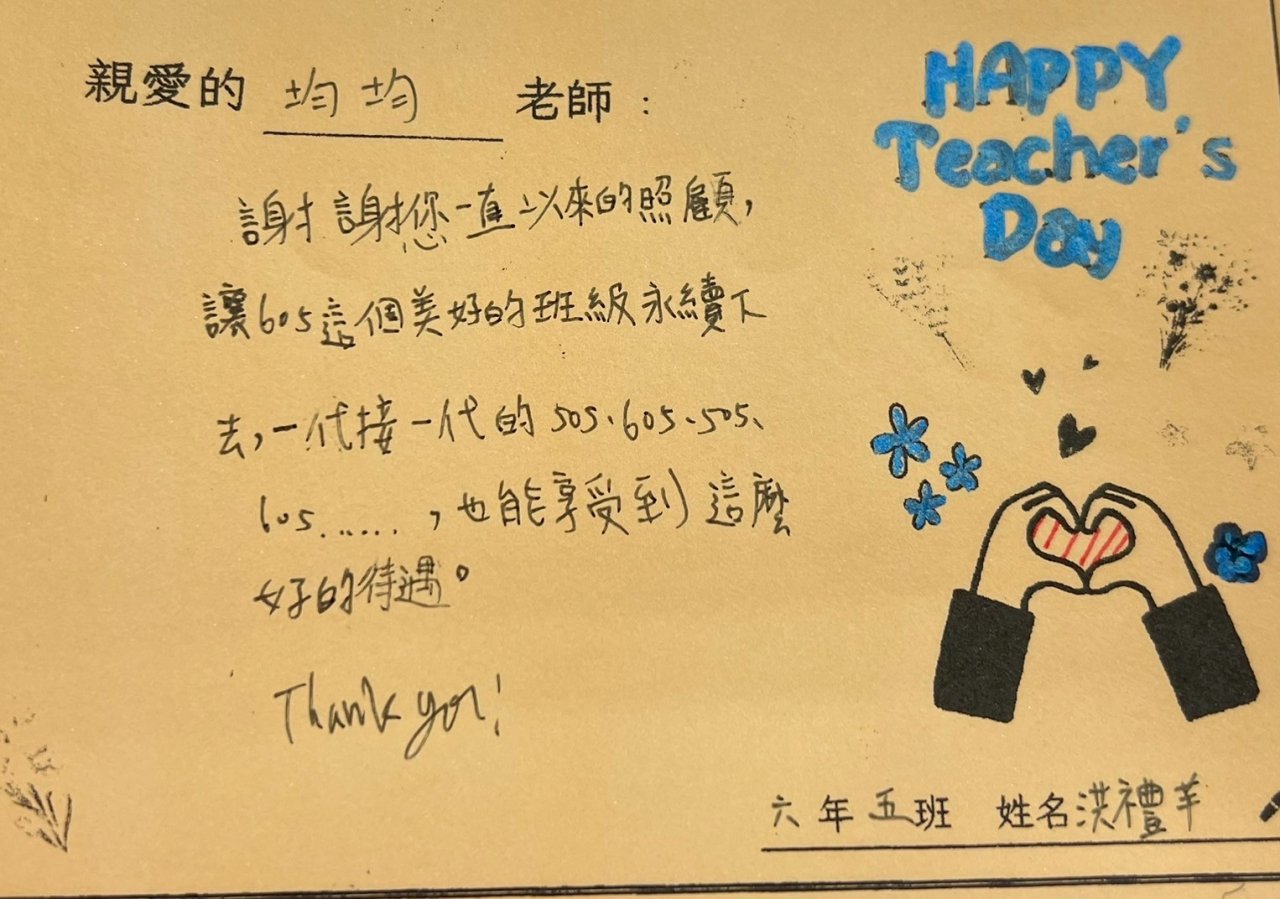 親愛的 均均 老師：
HAPPY
Teacher's
Day
謝謝您一直以來的照顧，
讓605這個美好的班級永續下
去，一代接一代的505、605、505、
605......，也能享受到這麼
好的待遇。
Thank you!
六年五班 姓名洪禮芊